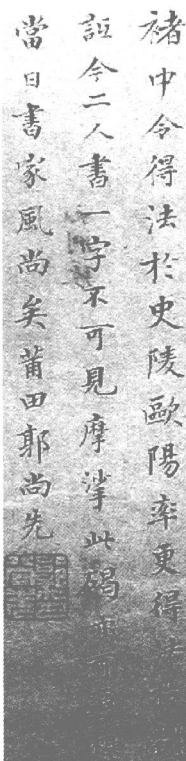 褚中令得法於史陵歐陽率更得法
詎今二人書一字不可見摩挲此碣亦可
當日書家風尚矣莆田郭尚先